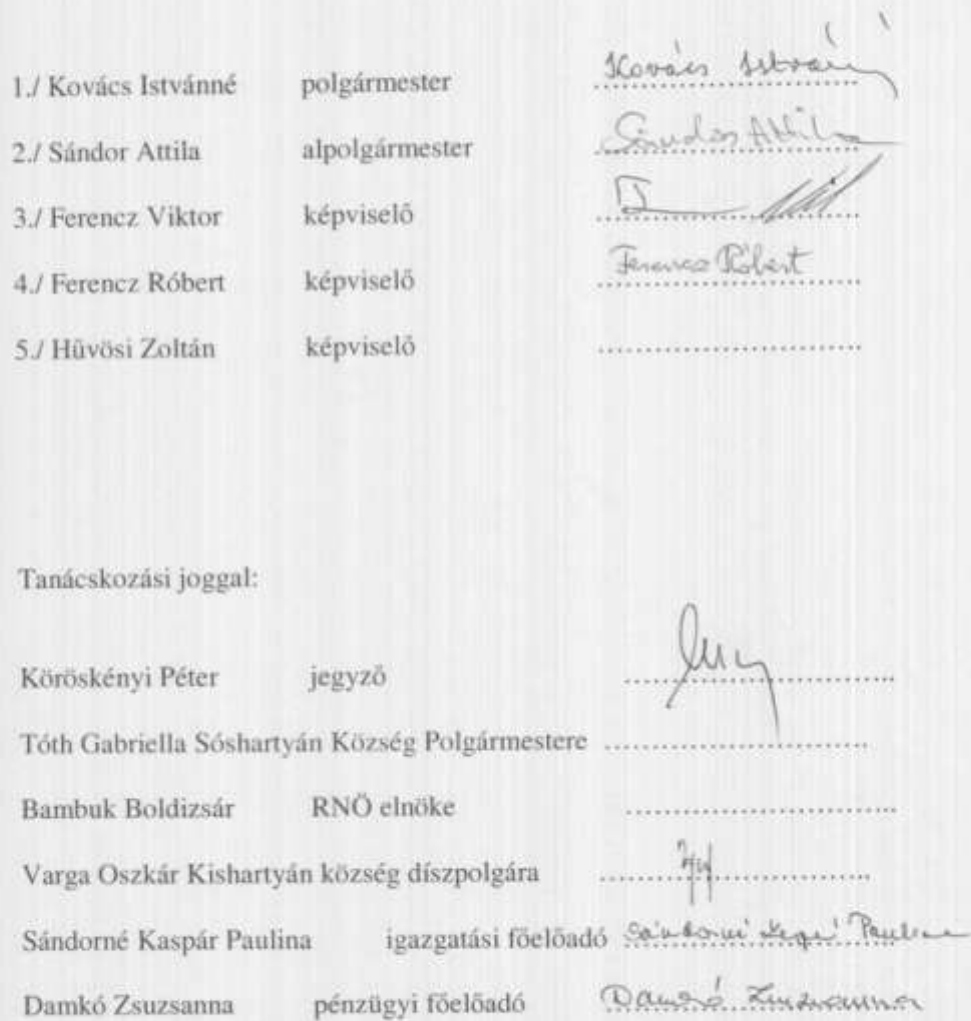 1./ Kovács Istvánné polgármester Kovács Istvánné
2./ Sándor Attila alpolgármester Sándor Attila
3./ Ferencz Viktor képviselő
4./ Ferencz Róbert képviselő Ferencz Róbert
5./ Hűvösi Zoltán képviselő
Tanácskozási joggal:
Köröskényi Péter jegyző
Tóth Gabriella Sóshartyán Község Polgármestere
Bambuk Boldizsár RNÖ elnöke
Varga Oszkár Kishartyán község díszpolgára
Sándorné Kaspár Paulina igazgatási főelőadó Sándorné Paulina
Damkó Zsuzsanna pénzügyi főelőadó Damkó Zsuzsanna